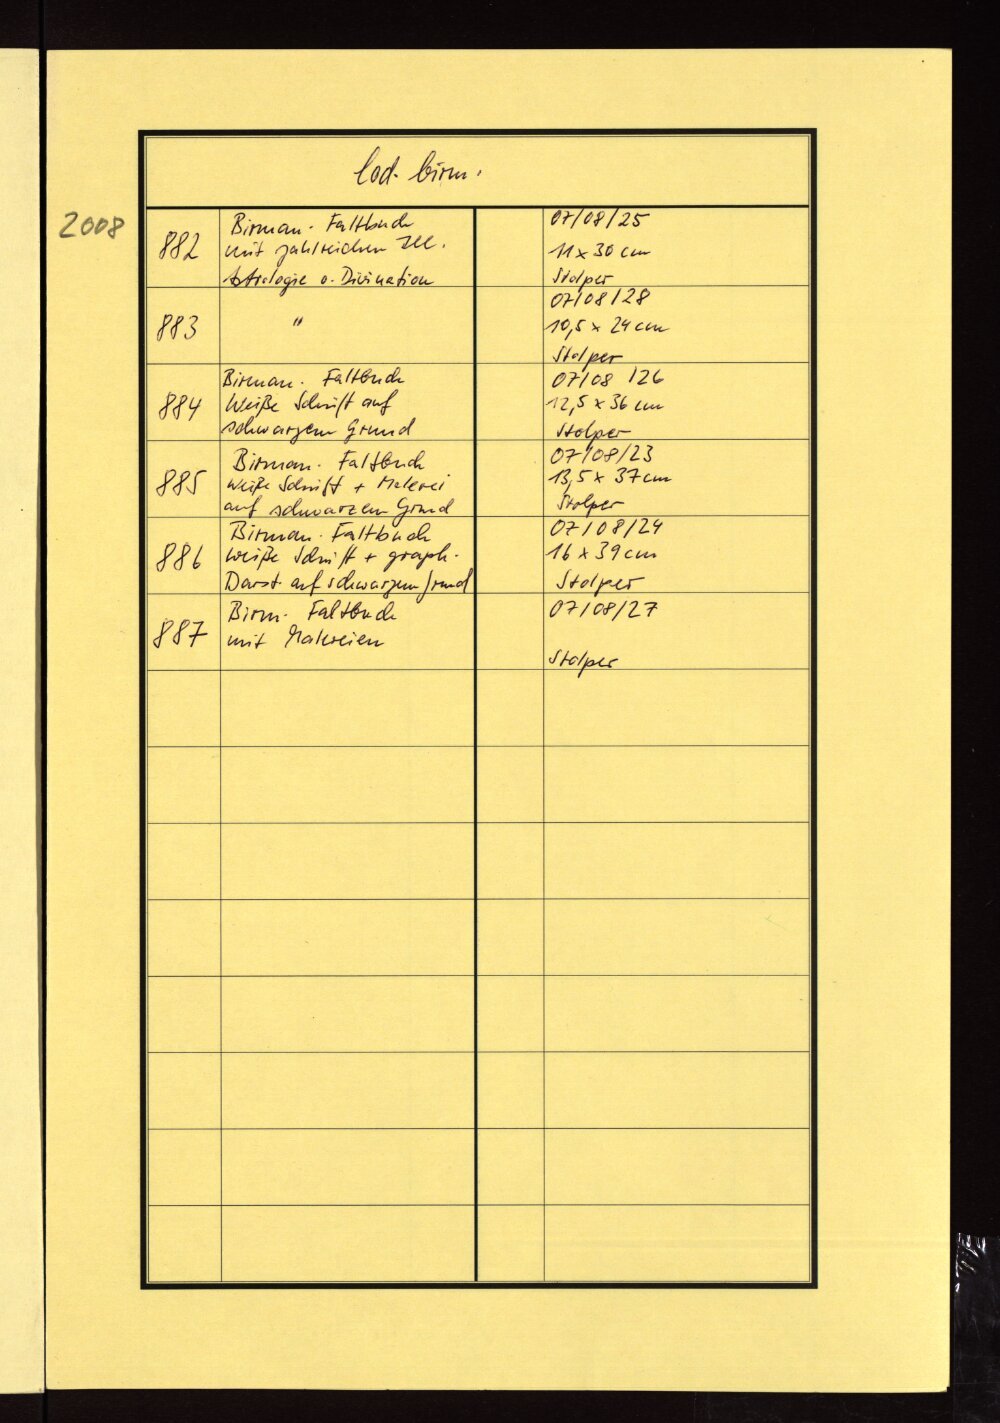 Cod. birm.
2008
882
Birman. Faltbuch
mit zahlreichen Ill.
Astrologie o. Divination
07/08/25
11 x 30 cm
Stolper
883
"
07/08/28
10,5 x 24 cm
Stolper
884
Birman. Faltbuch
Weiße Schrift auf
schwarzem Grund
07/08/26
12,5 x 36 cm
Stolper
885
Birman. Faltbuch
weiße Schrift + Malerei
auf schwarzem Grund
07/08/23
13,5 x 37 cm
Stolper
886
Birman. Faltbuch
weiße Schrift + graph.
Darst. auf schwarzem Grund
07/08/24
16 x 39 cm
Stolper
887
Birm. Faltbuch
mit Malereien
07/08/27
Stolper